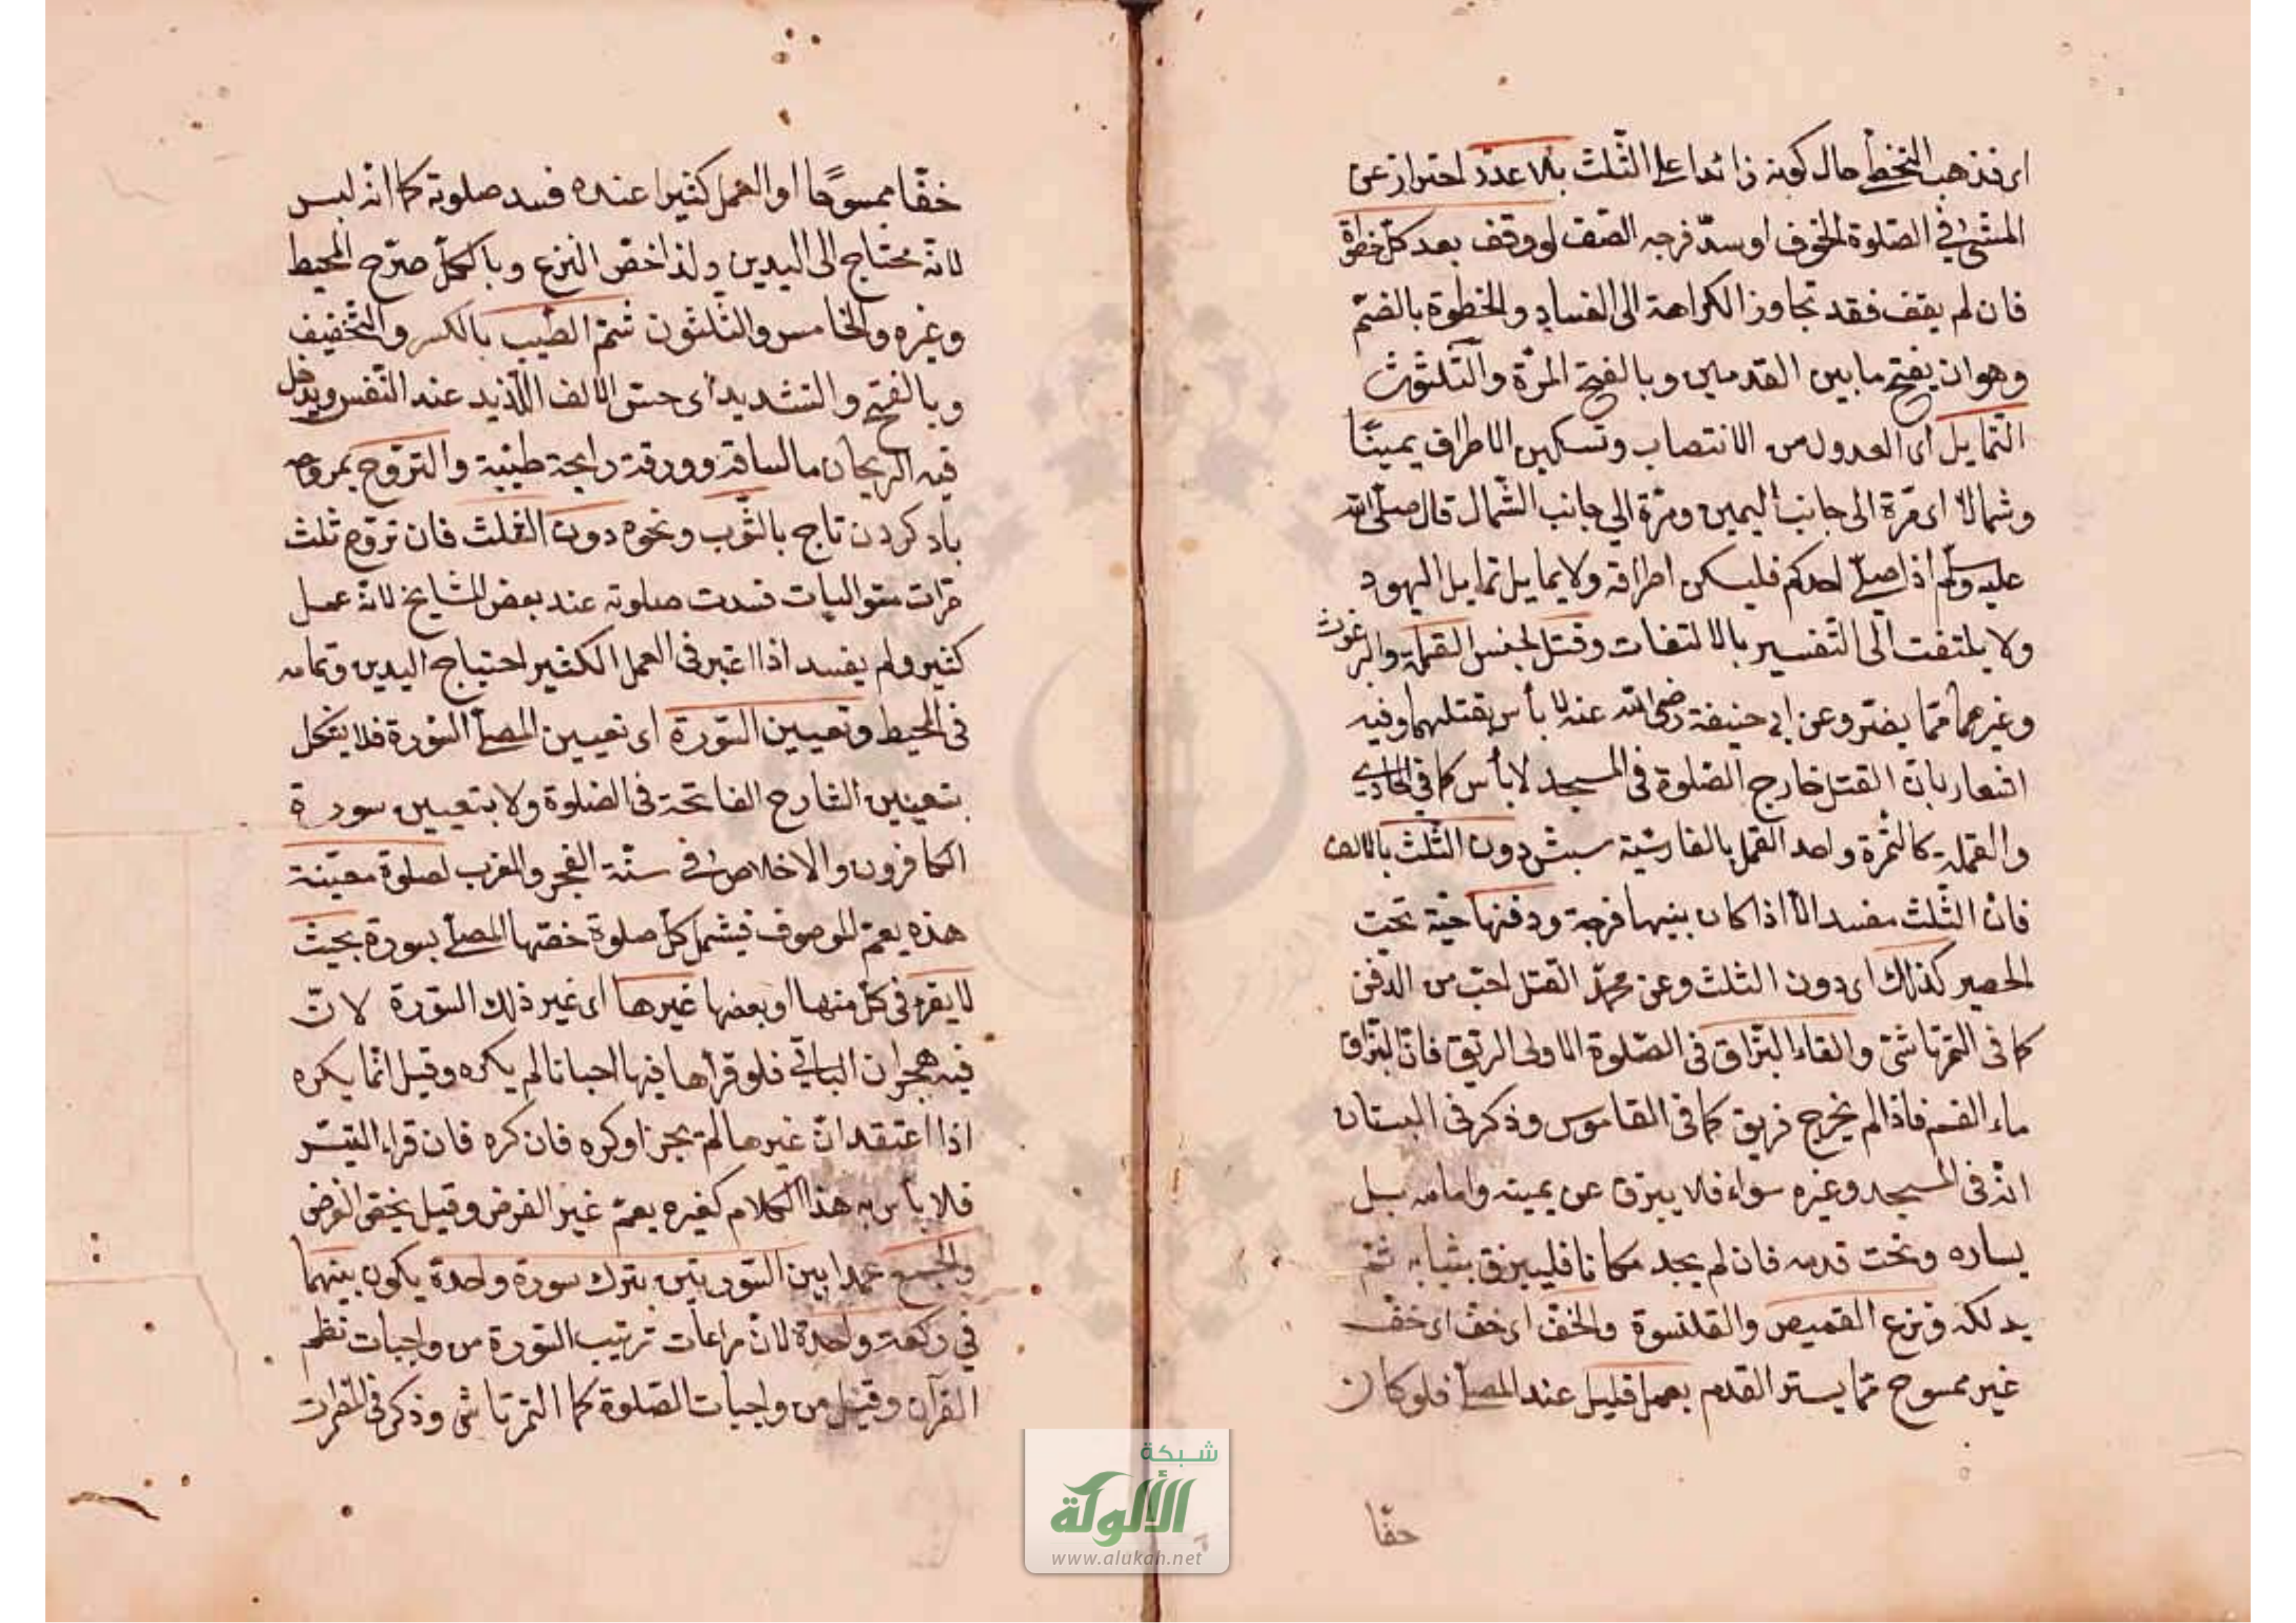 اى فذهب التخطّى حال كونه زائدا على الثّلث بلا عذر احتراز عن
المشى في الصّلوة الخوف او سدّ فرجه الصّف لو وقف بعد كلّ خطوة
فان لم يقف فقد تجاوز الكراهة الى الفساد والخطوة بالضمّ
وهو ان يفتح ما بين القدمين وبالفتح المرّة والثّلثون
التمايل اى العدول من الانتصاب وتسكين الاطراف يمينًا
وشمالا اى مرّة الى جانب اليمين ومرّة الى جانب الشّمال قال صلّى الله
عليه وسلّم اذا صلّى احدكم فليسكن اطرافه ولا يمايل تمايل اليهود
ولا يلتفت الى التّفسير بالالتفات وقتل لجنس القملة والبرغوث
وغيرهما ممّا يضرّ وعن ابى حنيفة رضى الله عنه لا بأس بقتلهما وفيه
اشعار بانّ القتل خارج الصّلوة فى المسجد لا بأس كما في
والقملة كالثمرة واحد القمل بالفارسّية سبش دون الثّلث بالالف
فانّ الثّلث مفسد الّا اذا كان بينها فرجة ودفنها حيّة تحت
الحصير كذلك اى دون الثلث وعن محمّد القتل احبّ من الدّفن
كما فى التمرتاشىّ والقاء البزّاق فى الصّلوة الاولى الريق فانّ البزّاق
ماء الفم فاذا لم يخرج فريق كما فى القاموس وذكر فى البستان
انّه فى المسجد وغيره سواء فلا يبزق عن يمينه وامامه بل
يساره وتحت قدمه فان لم يجد مكانا فليبزق بثيابه ثم
يدلكه ونزع القميص والقلنسوة والخفّ اى خفّ اى خفّ
غير ممسوح ممّا يستر القدم بعمل قليل عند المصلّى فلو كان
خفّا
خفّا ممسوحًا او العمل كثيرا عنده فسد صلوته كما انّه لبس
لانّه محتاج الى اليدين ولذا خصّ النزع وبالكلّ صرّح المحيط
وغيره والخامس والثّلثون شمّ الطّيب بالكسر والتّخفيف
وبالفتح والتشديد اى حسّ الالف اللّذيذ عند النّفس ويدخل
فيه الريحان ما لساقه وورقه رايحة طيّبة والتروّح بمروحه
باد كردن تاج بالثّوب ونحوه دون الثّلث فان تروّح ثلث
مرّات متواليات فسدت صلوته عند بعض المشايخ لانّه عمل
كثير ولم يفسد اذا اعتبر فى العمل الكثير احتياج اليدين وتمامه
فى المحيط وتعيين السّورة اى تعيين المصلّى السّورة فلا يشكل
بتعيين الشارح الفاتحة فى الصّلوة ولا بتعيين سورة
الكافرون والاخلاص في سنّة الفجر والمغرب لصلوة معيّنة
هذه يعمّ للموصوف فيشمل كلّ صلوة خصّها المصلّى بسورة بحيث
لا يقرء فى كلّ منها او بعضها غيرها اى غير ذلك السّورة لانّ
فيه هجران الباقي فلو قرأها فيها احيانا لم يكره وقيل انّما يكره
اذا اعتقد انّ غيرها لم يجز او كره فان كره فان قراء اليتسّر
فلا بأس به هذا الكلام كغيره يعمّ غير الفرض وقيل يختصّ الفرض
والجمع عمدا بين السّورتين بترك سورة واحدة يكون بينهما
في ركعة واحدة لانّ مراعات ترتيب السّورة من واجبات نظم
القرآن وقيل من واجبات الصّلوة كما التمرتاشى وذكر فى
شبكة
الألوكة
www.alukah.net